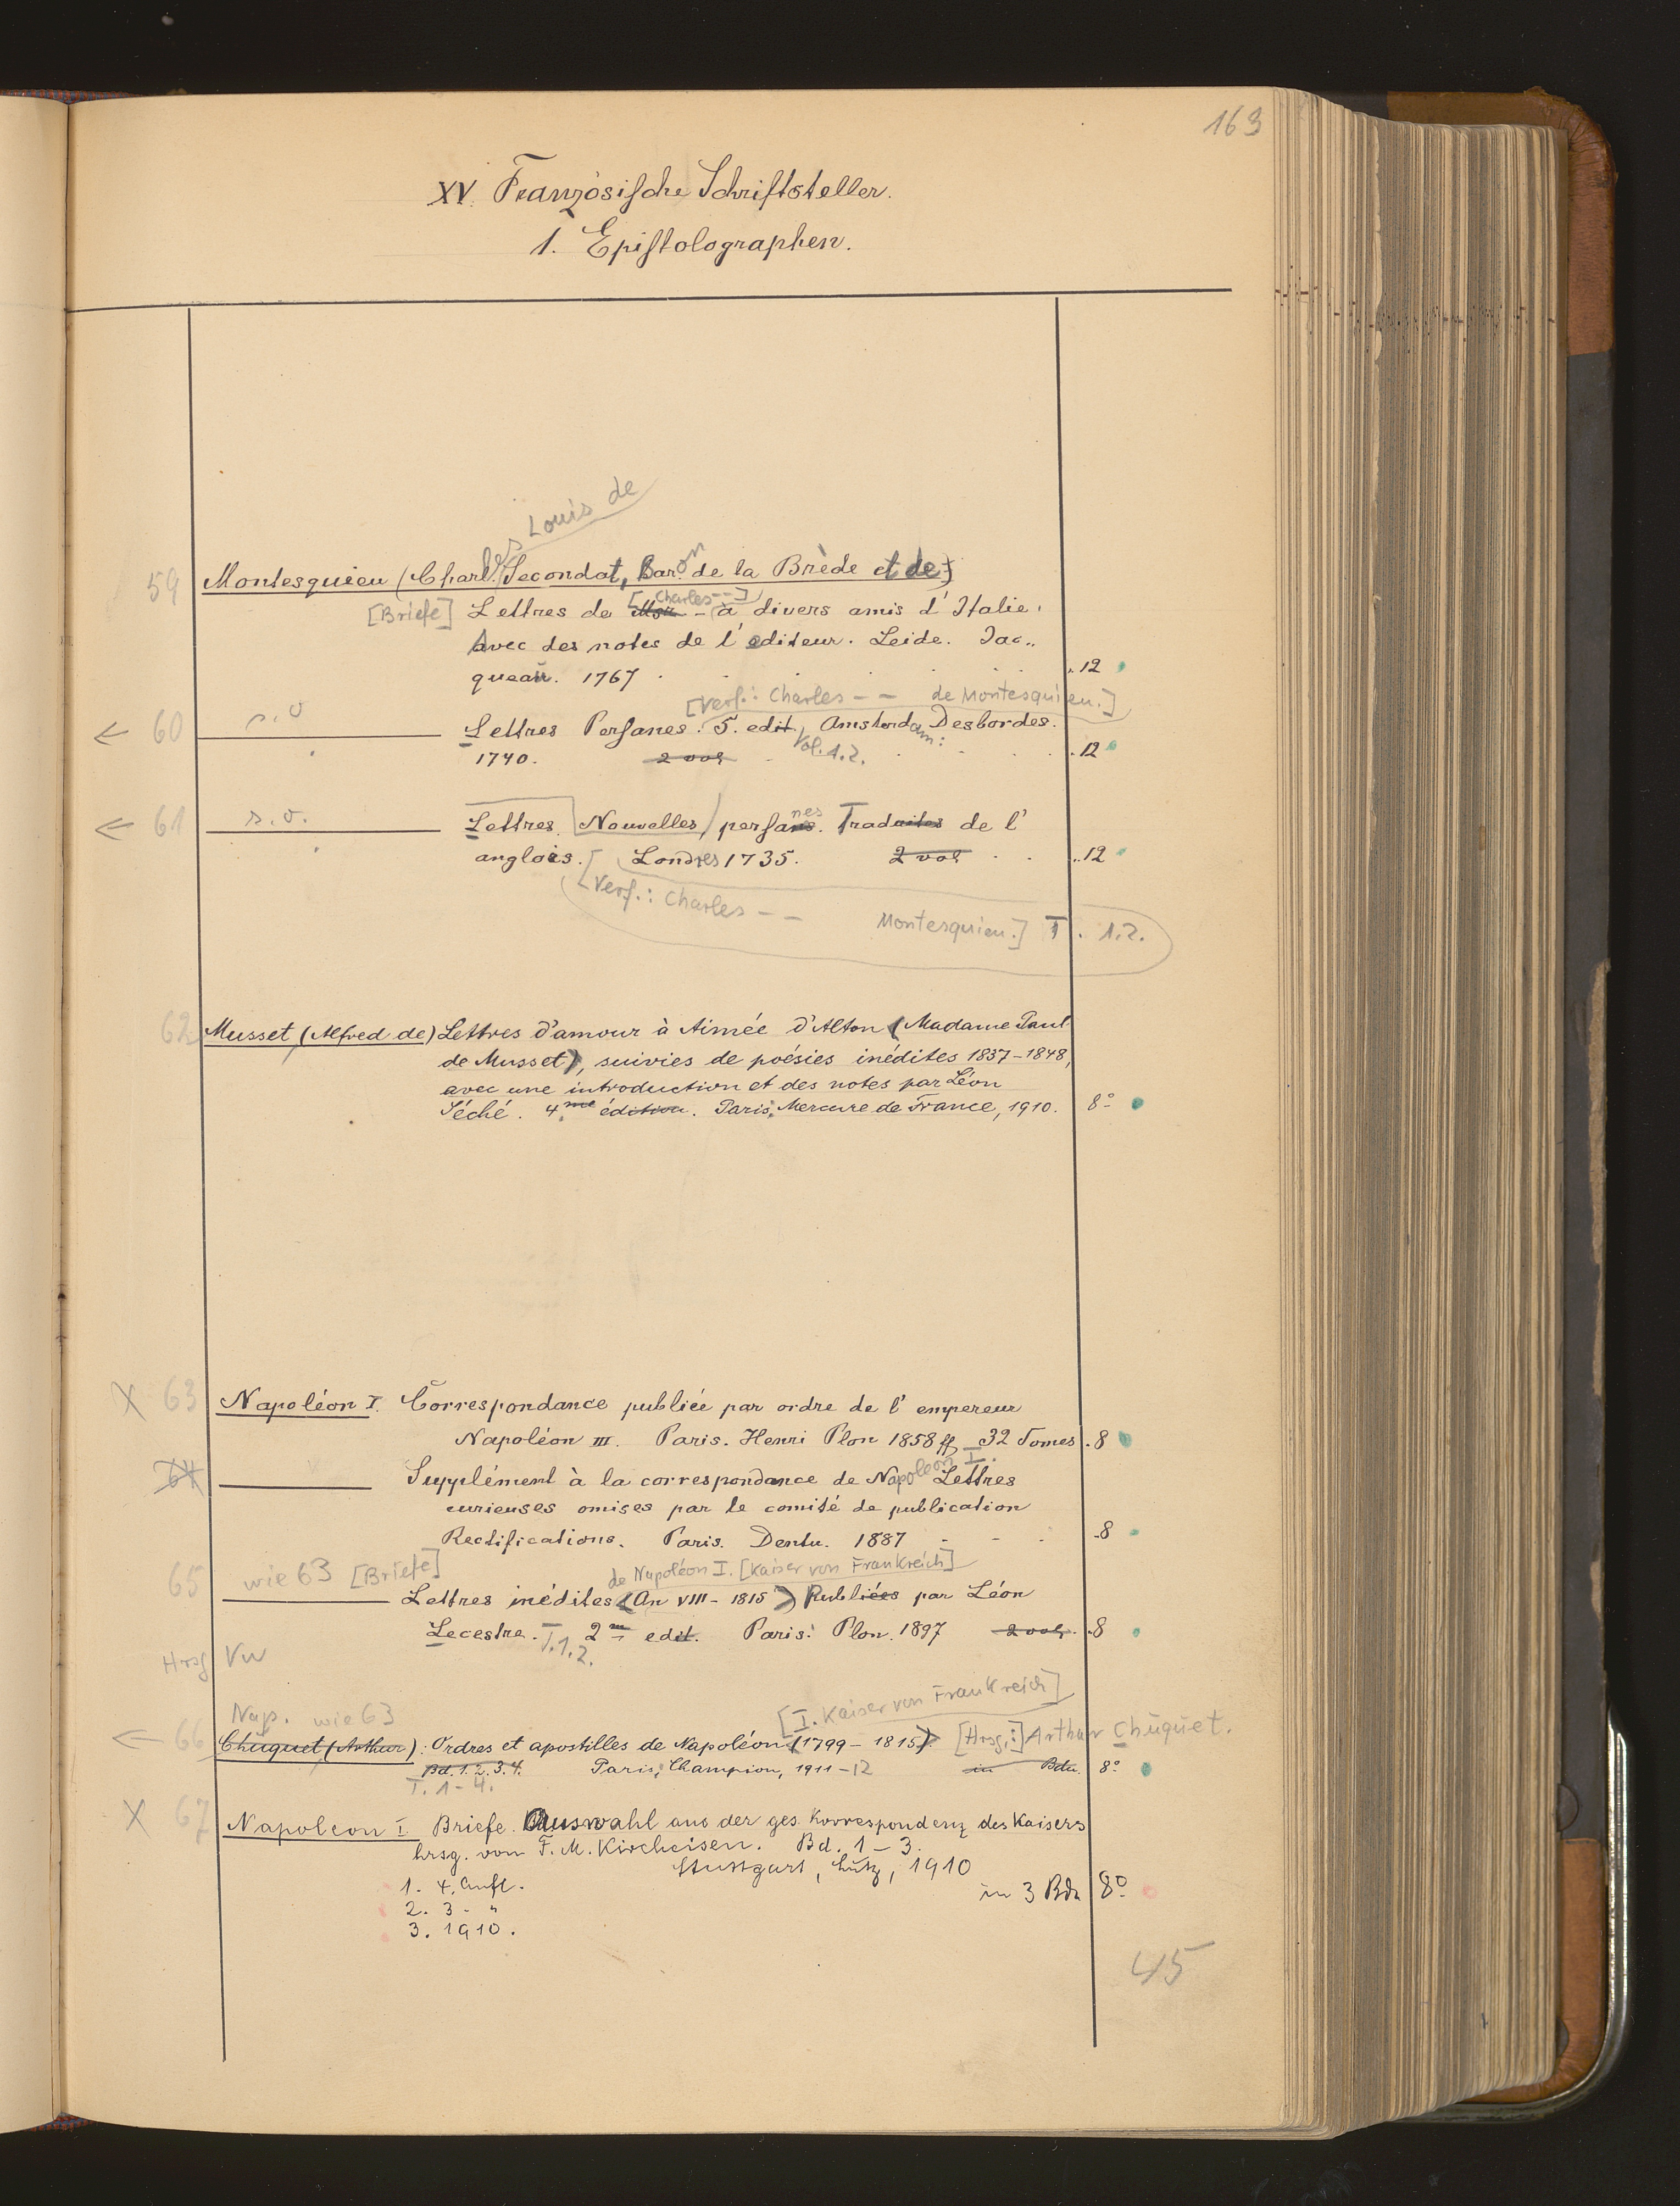 163
XV. Französische Schriftsteller.
1. Epistolographen.
Louis de
59 Montesquieu (Charles Secondat, Baron de la Brède et de)
[Briefe] Lettres de [Charles--] - à divers amis d'Italie.
Avec des notes de l'editeur. Leide. Jac..
queau. 1767 . 12
[Verf.: Charles -- de Montesquieu.]
← 60 s. o Lettres Persanes. 5. edit. Amsterdam: Desbordes.
1740. 2 vol Vol. 1.2. . 12
← 61 s. o. Lettres Nouvelles persanes. Traduites de l'
anglois. [ Londres 1735. 2 vol . . 12
Verf.: Charles -- Montesquieu.] T. 1.2.
62 Musset (Alfred de) Lettres d'amour à Aimée d'Alton (Madame Paul
de Musset), suivies de poésies inédites 1837-1848,
avec une introduction et des notes par Léon
Séché. 4.me édition. Paris: Mercure de France, 1910. 8°
X 63 Napoléon I. Correspondance publiée par ordre de l'empereur
Napoléon III. Paris. Henri Plon 1858 ff 32 Tomes . 8
64 Supplément à la correspondance de Napoleon I. Lettres
curieuses omises par le comité de publication
Rectifications. Paris. Dentu. 1887 - - . 8
65 wie 63 [Briefe] de Napoléon I. [Kaiser von Frankreich]
Lettres inédites (An VIII - 1815) Publiées par Léon
Lecestre. T. 1.2. 2me edit. Paris: Plon. 1897 2 vol. . 8
Hrsg Vw
Nap. wie 63 [I. Kaiser von Frankreich]
← 66 Chuquet (Arthur): Ordres et apostilles de Napoléon (1799-1815). [Hrsg.:] Arthur Chuquet.
Bd. 1.2.3.4. Paris, Champion, 1911-12 in Bdn. 8°
T. 1-4.
X 67 Napoleon I. Briefe. Auswahl aus der ges. Korrespondenz des Kaisers
hrsg. von F. M. Kircheisen. Bd. 1-3.
Stuttgart, Lutz, 1910
1. 4. Aufl. in 3 Bdn 8°
2. 3. "
3. 1910.
45